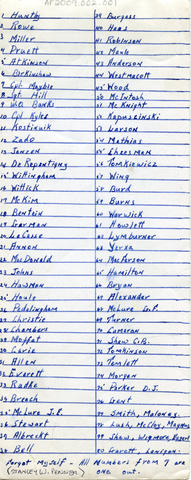 AF2009.002.001
1 Huntly
2 Rowe
3 Miller
4 Pruett
5 Atkinson
6 Birkinshaw
7 Cpl. Mayble
8 Sgt. Hill
9 Banks
10 Cpl Kyles
11 Kostiwik
12 Zado
13 Janzen
14 De Repentigny
15 Wittingham
16 Wittick
17 McKim
18 Bentein
19 Garman
20 LaCasse
21 Annon
22 MacDonald
23 Johns
24 Hawman
25 Houle
26 Peddlingham
27 Christie
28 Chambers
29 Moffat
30 Coris
31 Allen
32 Everett
33 Radke
34 Breach
35 McLure J.E.
36 Stewart
37 Albrecht
38 Bell
39 Burgess
40 Haas
41 Robinson
42 Monk
43 Anderson
44 Westmacott
45 Wood
46 McIntosh
47 McKnight
48 Kapuscinski
49 Larson
50 Mathias
51 Cheesman
52 Tomkiewicz
57 Wing
58 Burd
59 Burns
60 Warwick
61 Howlett
62 Lymburner
63 Yerxa
64 MacPerson
65 Hamilton
66 Bryan
67 Alexander
68 McLure G.P.
69 Turner
70 Cameron
71 Shaw C.B.
72 Tomkins
73 Tomlett
74 Morgan
75 Parker D.J.
76 Gent
77 Smith, Maloney,
78 McCloy,
79 Shaw, Wigmore,
80 Garett,
Forgot Myself - All Numbers from 7 are
(STANLEY W. PENNER) one out.